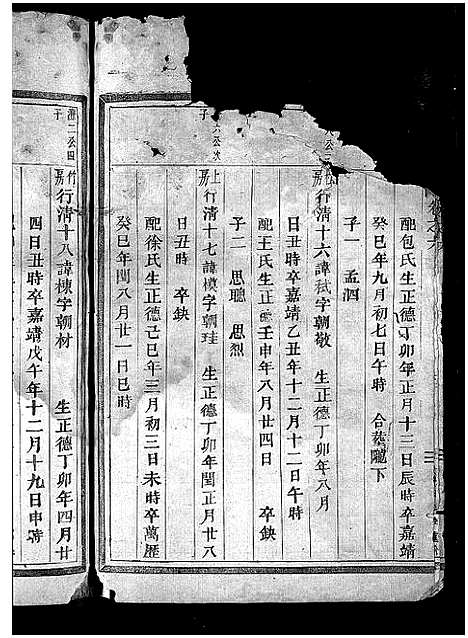 配包氏生正德丁卯年正月十二日辰時卒嘉靖
癸巳年九月初七日午時 合葬隴下
子一 孟泗
行清十六諱軾字朝敬 生正德丁卯年八月
日丑時卒嘉靖乙丑年十二月二十一日午時
配王氏生正德壬申年八月廿四日 卒缺
子二 思聰 思烈
上房
行清十七諱模字朝珪 生正德丁卯年閏正月廿八
日丑時 卒缺
配徐氏生正德己巳年三月初三日未時卒萬歷
癸巳年閏八月廿一日巳時
二公四子
竹房
行清十八諱棟字朝材 生正德丁卯年四月廿
四日丑時卒嘉靖戊午年十二月十九日申時